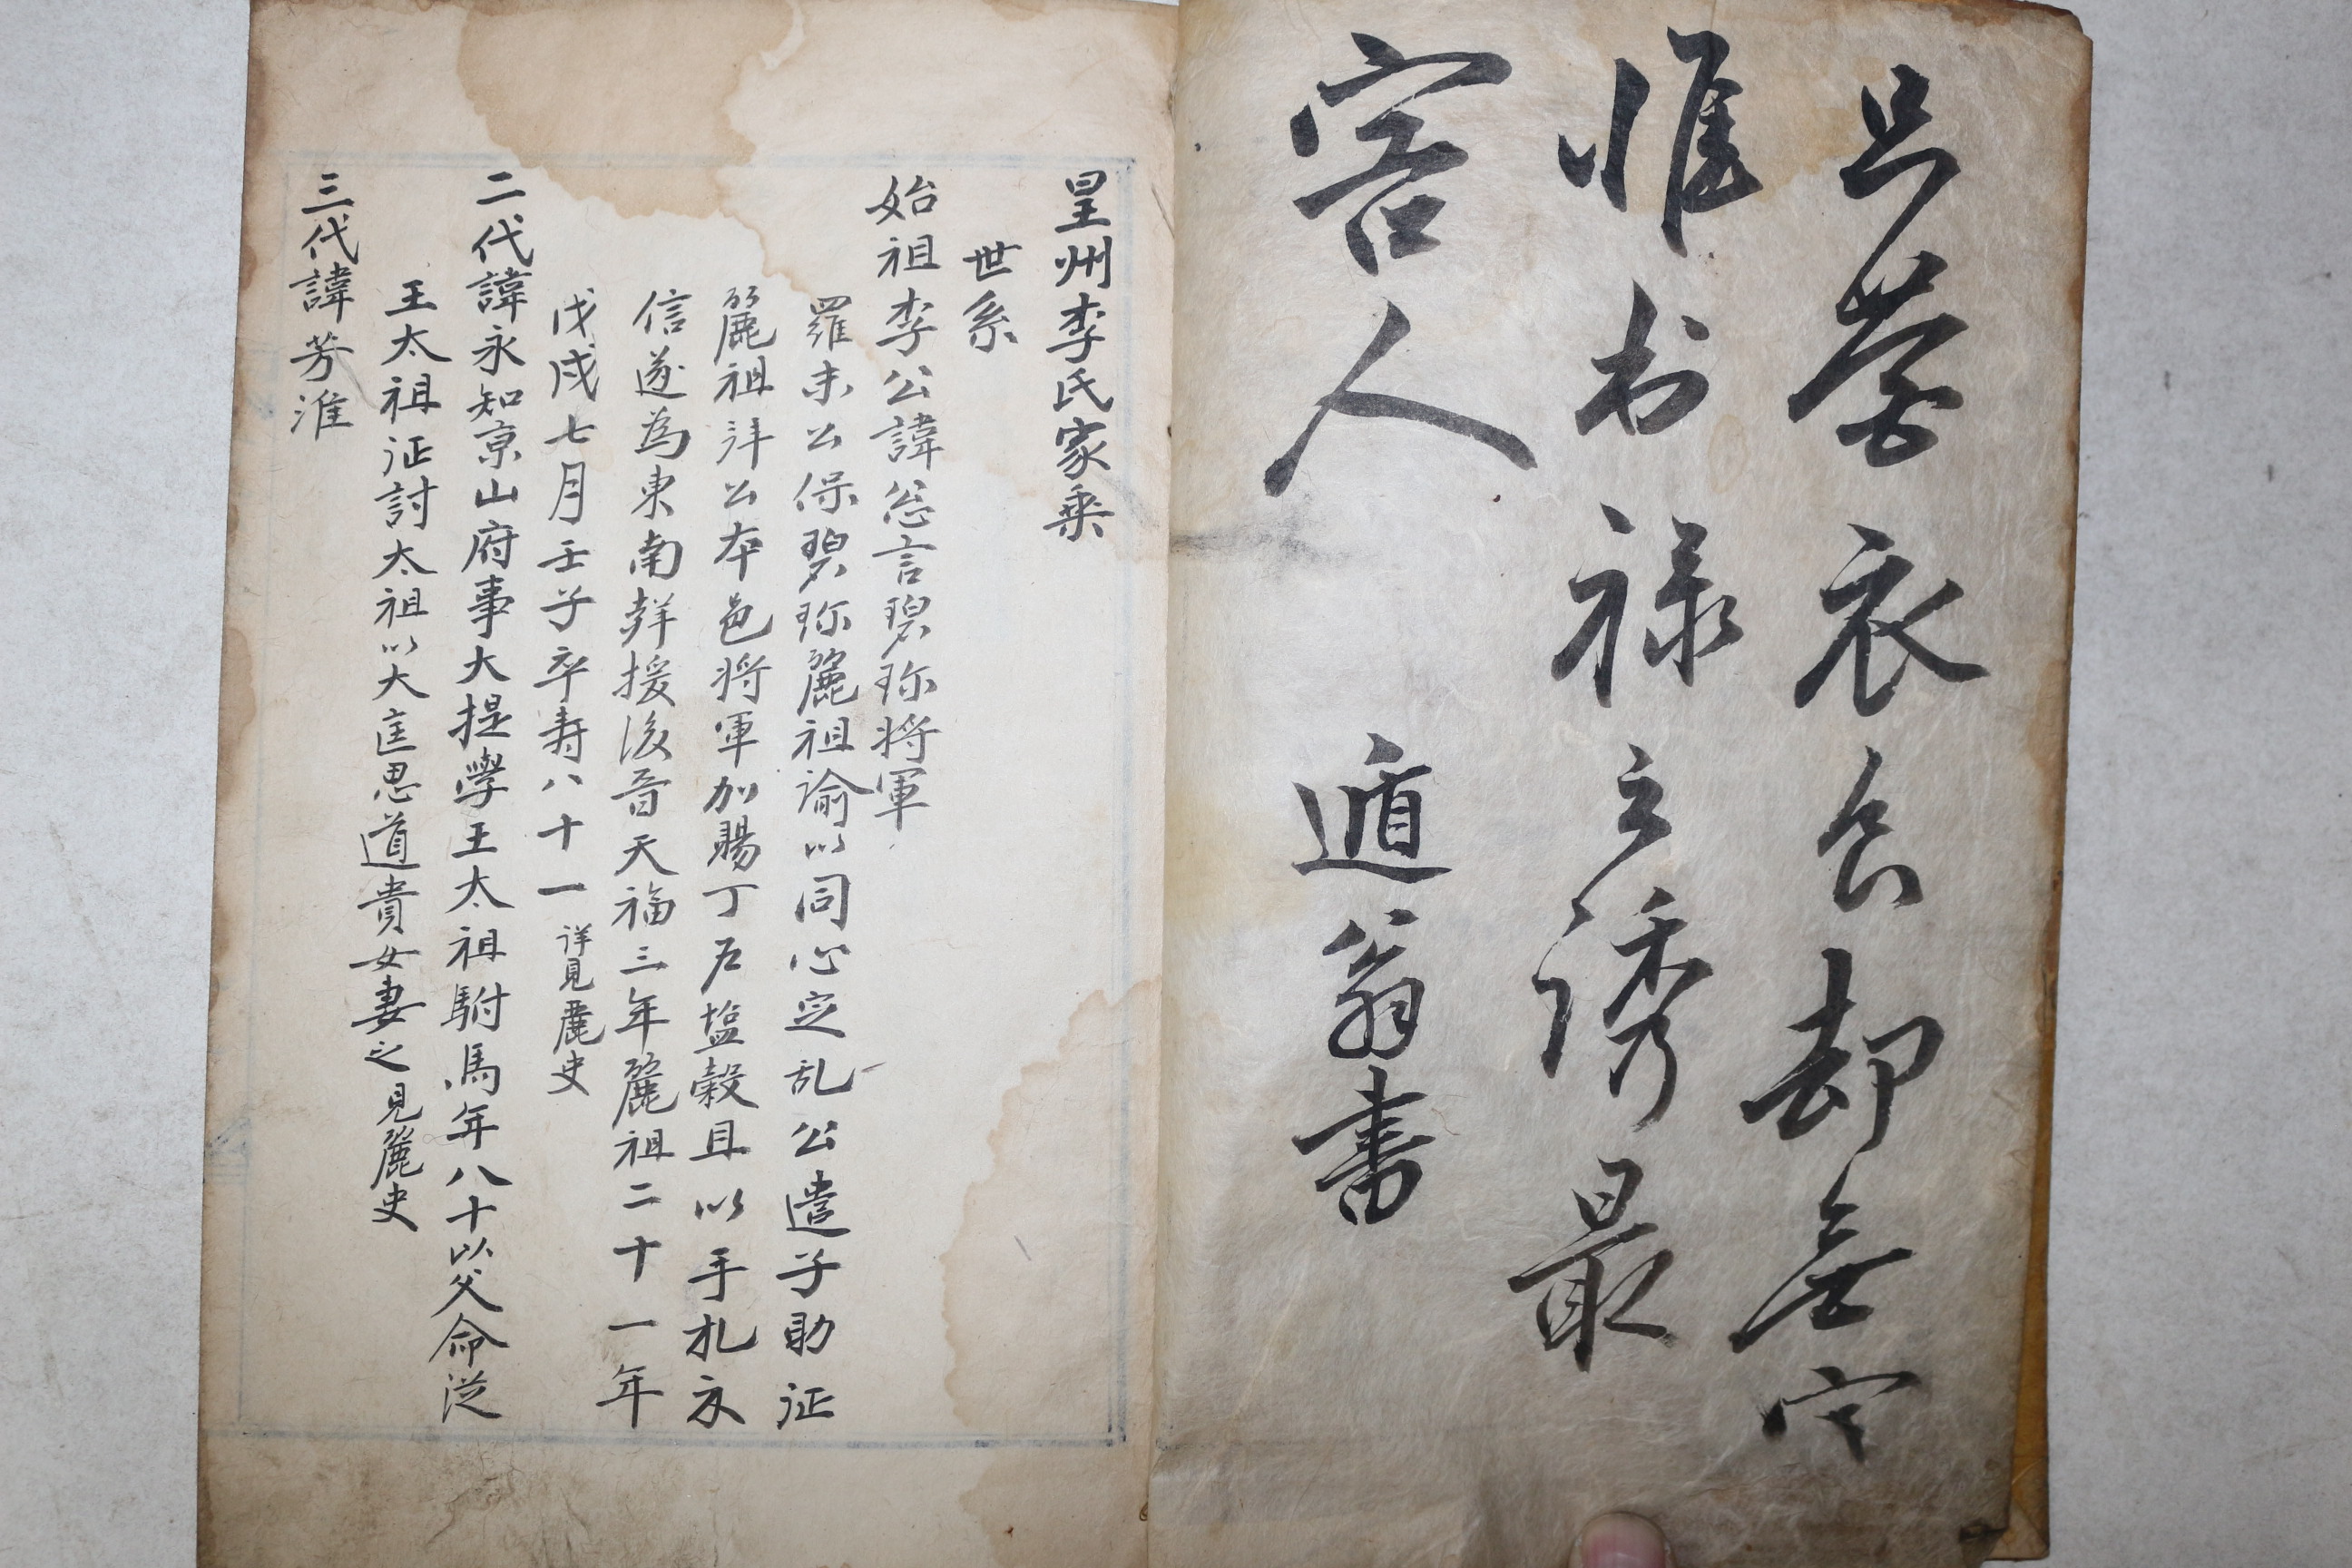 只營衣食却無害
惟於祿之誘最
害人　遁翁書
星州李氏家乘
世系
始祖李公諱忩言碧珍將軍
羅末公保碧珍麗祖諭以同心定乱公遣子助征
麗祖拜公本邑將軍加賜丁戶塩穀且以手札永
信遂為東南聲援後晉天福三年麗祖二十一年
戊戌七月壬子卒壽八十一 詳見麗史
二代諱永知京山府事大提學王太祖駙馬年八十以父命從
王太祖征討太祖以大匡思道貴女妻之見麗史
三代諱芳淮